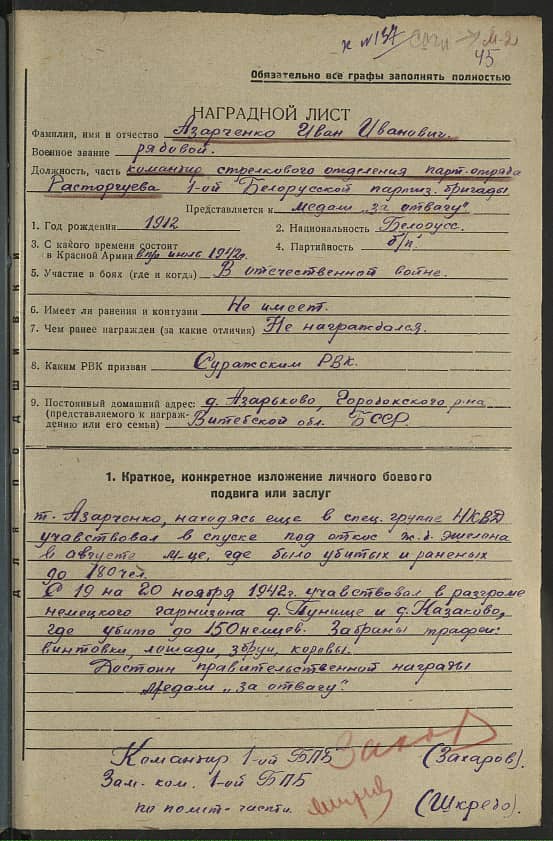 к №137 Сочи → М-2
45
Обязательно все графы заполнять полностью
НАГРАДНОЙ ЛИСТ
Фамилия, имя и отчество Азарченко Иван Иванович.
Военное звание рябовой.
Должность, часть командир стрелкового отделения парт. отряда
Расторгуева 1-ой Белорусской партиз. бригады
Представляется к медали „за отвагу"
1. Год рождения 1912 2. Национальность Белорусс.
3. С какого времени состоит в Красной Армии впр июль 1942г. 4. Партийность б/п.
5. Участие в боях (где и когда) В отечественной войне.
6. Имеет ли ранения и контузии Не имеет.
7. Чем ранее награжден (за какие отличия) Не награждался.
8. Каким РВК призван Суражским РВК.
9. Постоянный домашний адрес: д. Азарьково, Городокского р-на
(представляемого к награждению или его семьи) Витебской обл. БССР.
для подшивки
1. Краткое, конкретное изложение личного боевого
подвига или заслуг
т. Азарченко, находясь еще в спец. группе НКВД
учавствовал в спуске под откос ж.д. эшелона
в августе м-це, где было убитых и раненых
до 180 чел.
С 19 на 20 ноября 1942г. учавствовал в разгроме
немецкого гарнизона д. Пунище и д. Казаково,
где убито до 150 немцев. Забраны трофеи:
винтовки, лошади, збруи, коровы.
Достоин правительственной награды
медали „за отвагу".
Командир 1-ой БПБ (Захаров).
Зам. ком. 1-ой БПБ
по полит-части. (Шкредо).